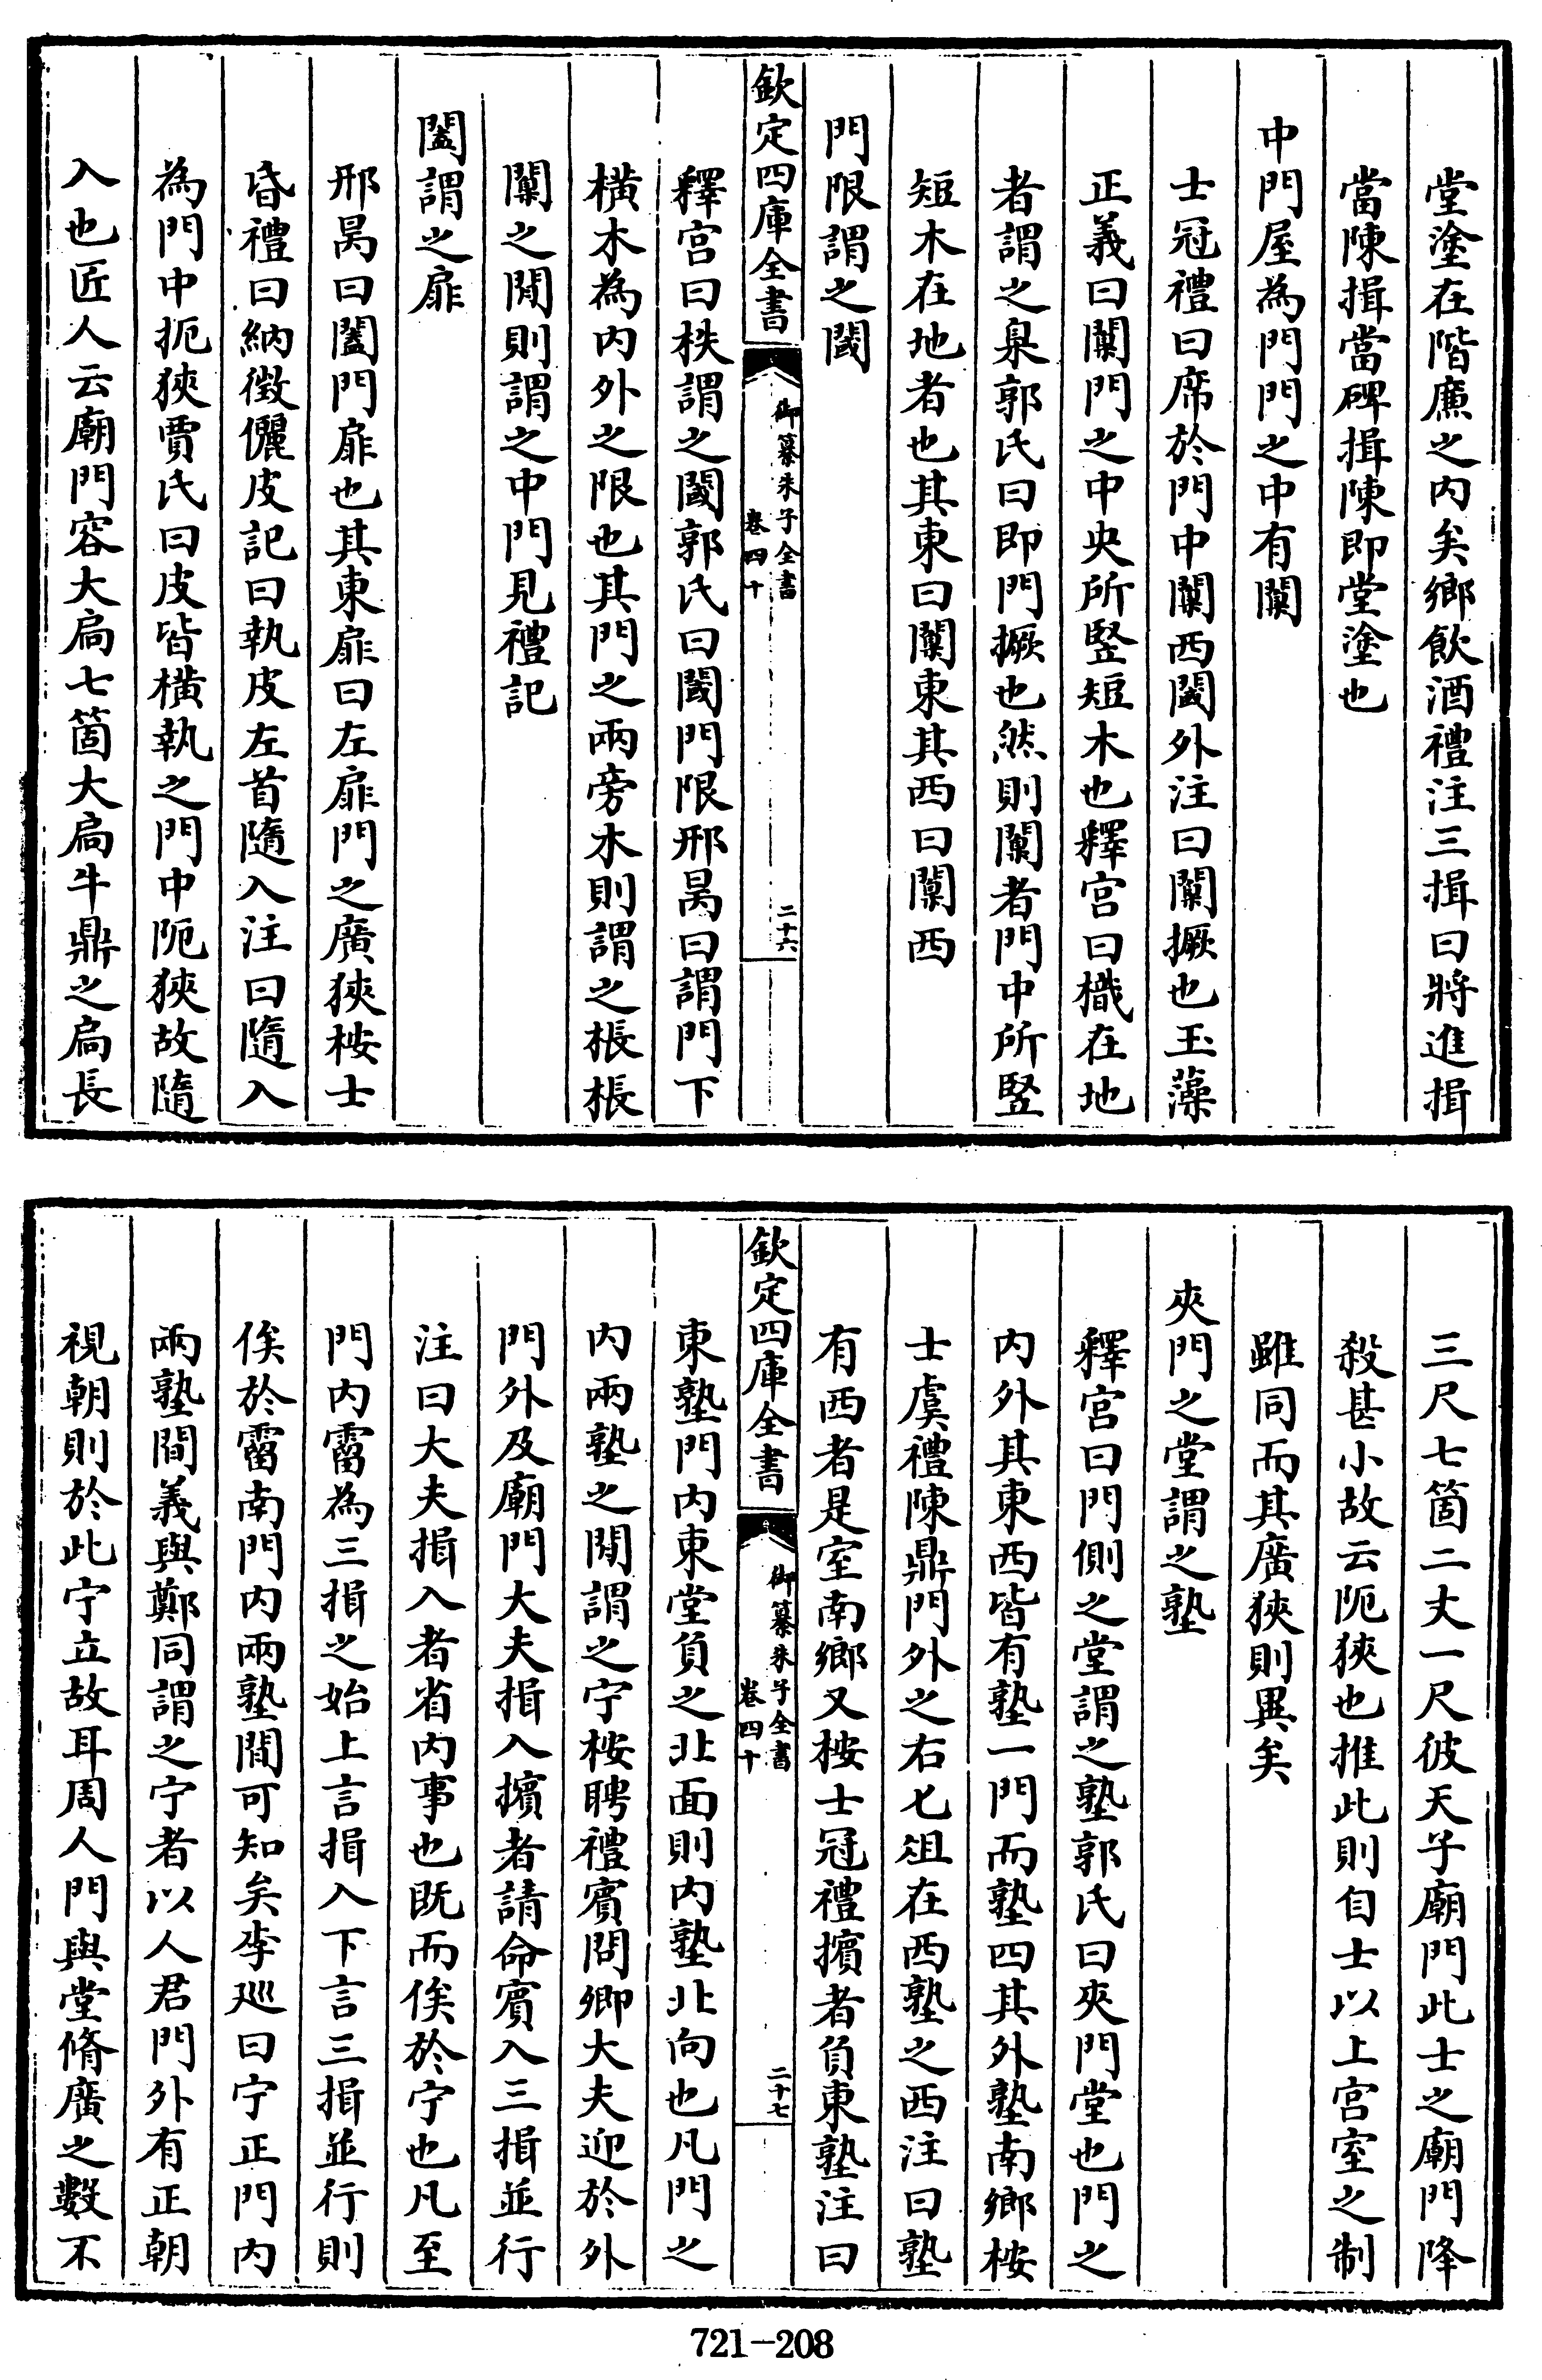 堂塗在階廉之内矣鄉飲酒禮注三揖曰將進揖
當陳揖當碑揖陳即堂塗也
中門屋為門門之中有闑
士冠禮曰席於門中闑西閾外注曰闑橛也玉藻
正義曰闑門之中央所竪短木也釋宫曰樴在地
者謂之臬郭氏曰即門橛也然則闑者門中所竪
短木在地者也其東曰闑東其西曰闑西
門限謂之閾
欽定四庫全書
御纂朱子全書
卷四十
二十六
釋宫曰柣謂之閾郭氏曰閾門限邢昺曰謂門下
橫木為内外之限也其門之兩旁木則謂之棖棖
闑之閒則謂之中門見禮記
闔謂之扉
邢昺曰闔門扉也其東扉曰左扉門之廣狹桉士
昏禮曰納徴儷皮記曰執皮左首隨入注曰隨入
為門中扼狹賈氏曰皮皆橫執之門中阨狹故隨
入也匠人云廟門容大扃七箇大扃牛鼎之扃長
三尺七箇二丈一尺彼天子廟門此士之廟門降
殺甚小故云阨狹也推此則自士以上宫室之制
雖同而其廣狹則異矣
夾門之堂謂之塾
釋宫曰門側之堂謂之塾郭氏曰夾門堂也門之
内外其東西皆有塾一門而塾四其外塾南鄉桉
士虞禮陳鼎門外之右匕俎在西塾之西注曰塾
有西者是室南鄉又桉士冠禮擯者負東塾注曰
欽定四庫全書
御纂朱子全書
卷四十
二十七
東塾門内東堂負之北面則内塾北向也凡門之
内兩塾之閒謂之宁桉聘禮賓問卿大夫迎於外
門外及廟門大夫揖入擯者請命賓入三揖並行
注曰大夫揖入者省内事也既而俟於宁也凡至
門内霤為三揖之始上言揖入下言三揖並行則
俟於霤南門内兩塾閒可知矣李巡曰宁正門内
兩塾閒義與鄭同謂之宁者以人君門外有正朝
視朝則於此宁立故耳周人門與堂脩廣之數不
721-208